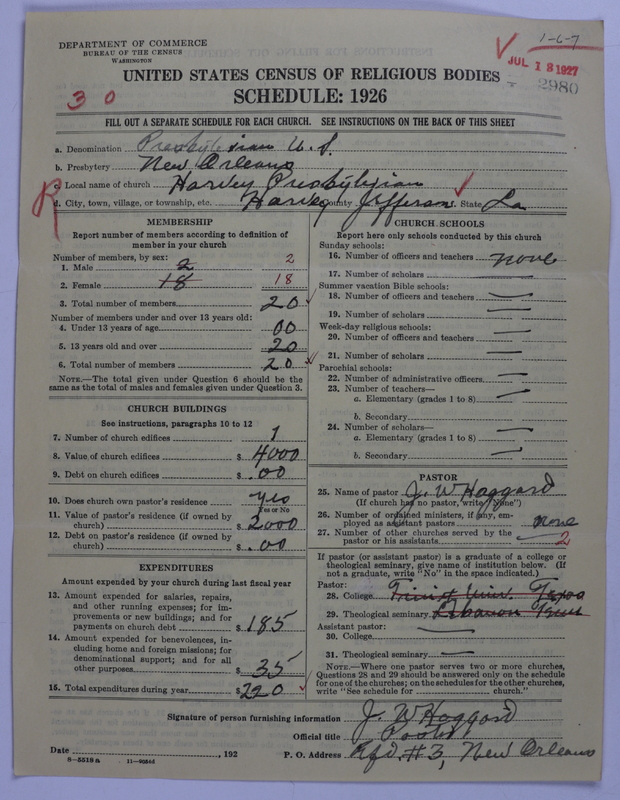 1-6-7
DEPARTMENT OF COMMERCE
BUREAU OF THE CENSUS
WASHINGTON
JUL 18 1927
2980
UNITED STATES CENSUS OF RELIGIOUS BODIES
30
SCHEDULE: 1926
FILL OUT A SEPARATE SCHEDULE FOR EACH CHURCH. SEE INSTRUCTIONS ON THE BACK OF THIS SHEET
a. Denomination Presbyterian U.S.
b. Presbytery New Orleans
c. Local name of church Harvey Presbyterian
R d. City, town, village, or township, etc. Harvey County Jefferson State La
MEMBERSHIP
Report number of members according to definition of
member in your church
Number of members, by sex:
1. Male 2 2
2. Female 18 18
3. Total number of members 20
Number of members under and over 13 years old:
4. Under 13 years of age 00
5. 13 years old and over 20
6. Total number of members 20
NOTE.—The total given under Question 6 should be
same as the total of males and females given under Question 3.
CHURCH BUILDINGS
See instructions, paragraphs 10 to 12
7. Number of church edifices 1
8. Value of church edifices $ 4000
9. Debt on church edifices $ .00
10. Does church own pastor's residence yes
Yes or No
11. Value of pastor's residence (if owned by
church) $ 2000
12. Debt on pastor's residence (if owned by
church) $ .00
EXPENDITURES
Amount expended by your church during last fiscal year
13. Amount expended for salaries, repairs,
and other running expenses; for im-
provements or new buildings; and for
payments on church debt $ 185
14. Amount expended for benevolences, in-
cluding home and foreign missions; for
denominational support; and for all
other purposes $ 35
15. Total expenditures during year $ 220
CHURCH SCHOOLS
Report here only schools conducted by this church
Sunday schools:
16. Number of officers and teachers none
17. Number of scholars
Summer vacation Bible schools:
18. Number of officers and teachers
19. Number of scholars
Week-day religious schools:
20. Number of officers and teachers
21. Number of scholars
Parochial schools:
22. Number of administrative officers
23. Number of teachers—
a. Elementary (grades 1 to 8)
b. Secondary
24. Number of scholars—
a. Elementary (grades 1 to 8)
b. Secondary
PASTOR
25. Name of pastor J. W Haggard
(If church has no pastor, write "None")
26. Number of ordained ministers, if any, em-
ployed as assistant pastors none
27. Number of other churches served by the
pastor or his assistants 2
If pastor (or assistant pastor) is a graduate of a college or
theological seminary, give name of institution below. (If
not a graduate, write "No" in the space indicated.)
Pastor:
28. College Trinity Univ. Texas
29. Theological seminary Lebanon Tenn
Assistant pastor:
30. College
31. Theological seminary
NOTE.—Where one pastor serves two or more churches,
Questions 28 and 29 should be answered only on the schedule
for one of the churches; on the schedules for the other churches,
write "See schedule for church."
Signature of person furnishing information J. W Haggard
Official title Pastor
Date , 192 P. O. Address Rfd. #3, New Orleans
8-5518 a